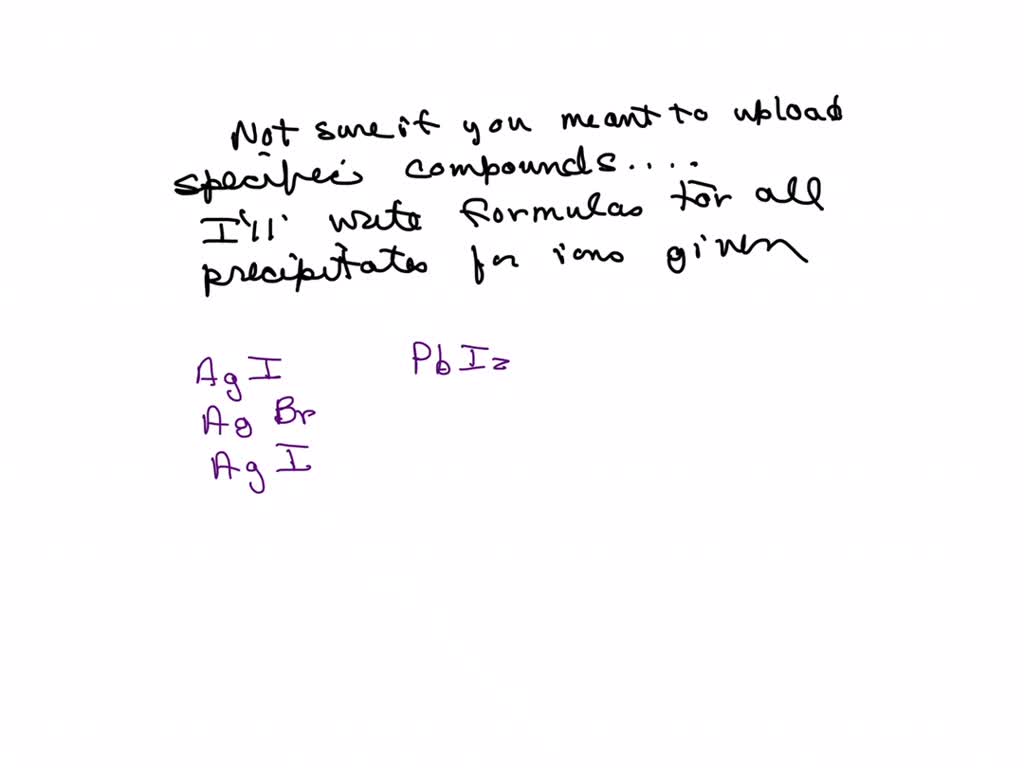 Not sure if you meant to upload
specific compounds....
I'll write formulas for all
precipitates for ions given
AgI PbI2
AgBr
AgI